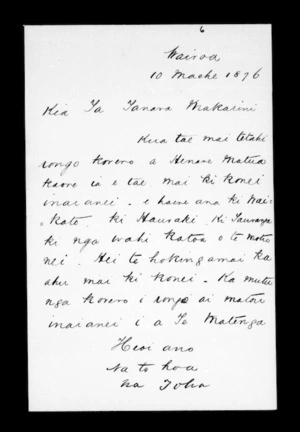 6
Wairoa
10 Maehe 1876
Kia Ta Tanara Makarini
Kua tae mai tetahi
rongo korero a Henare Matua
kaore ia e tae mai ki konei
inaianei. e haere ana ki Wai-
kato, ki Hauraki, Ki Tauranga
ki nga wahi katoa o te motu
nei. Hei te hokingamai ka
ahu mai ki konei. Ka mutu
nga korero i rongo ai matou
inaianei i a Te Matenga
Heoi ano
Na to hoa
Na Toha